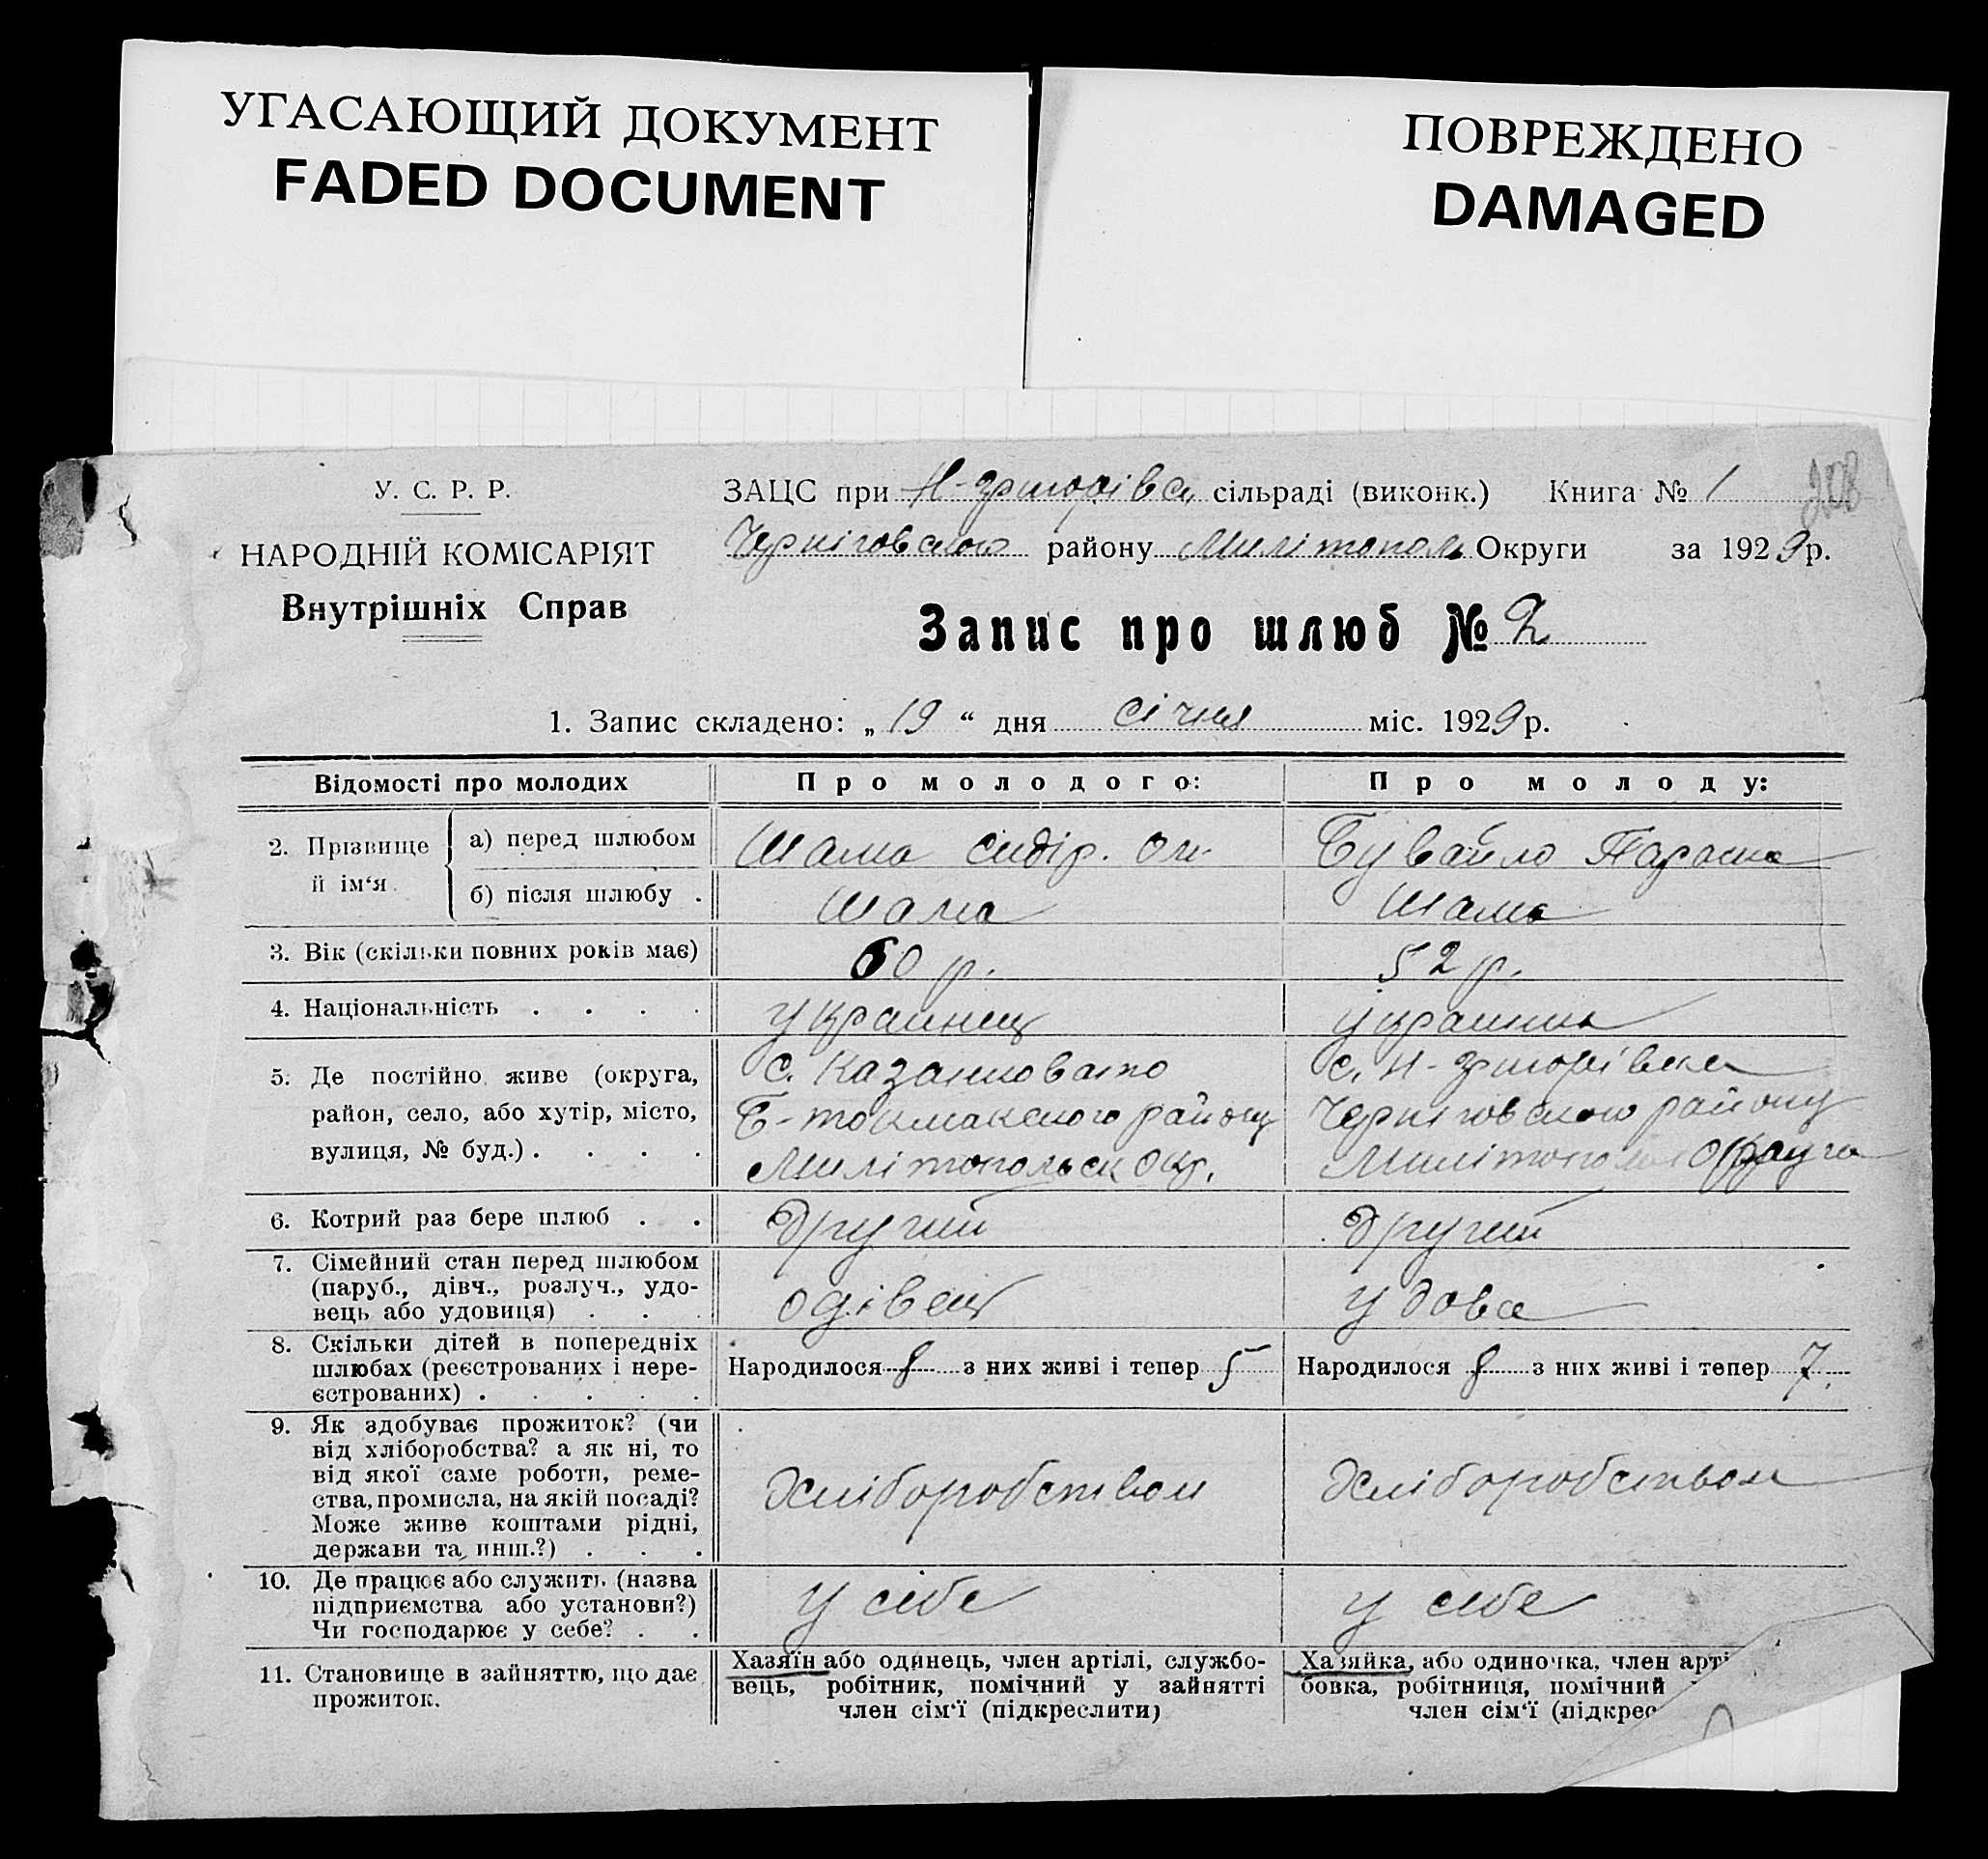 УГАСАЮЩИЙ ДОКУМЕНТ
FADED DOCUMENT
ПОВРЕЖДЕНО
DAMAGED
У. С. Р. Р.
НАРОДНІЙ КОМІСАРІЯТ
Внутрішніх Справ
ЗАЦС при Н-григорівск. сільраді (виконк.) Книга № 1
Черніговського району Милітополь Округи за 1929 р.
Запис про шлюб № 2
1. Запис складено: „ 19 “ дня січня міс. 1929 р.
Відомості про молодих
Про молодого:
Про молоду:
2. Прізвище й ім‘я
а) перед шлюбом
Шама Сидір. Он.
Бувайло Параска
б) після шлюбу .
Шама
Шама
3. Вік (скільки повних років має)
60 р.
52 р.
4. Національність . . . .
украинец
украинка
5. Де постійно живе (округа,
район, село, або хутір, місто,
вулиця, № буд.) . . . .
с. Казанковато
Б-токмакского району
Милітопольск окр.
с. Н-григорівка
Черніговского району
Милітополь Округа
6. Котрий раз бере шлюб . .
другий
другий
7. Сімейний стан перед шлюбом
(паруб., дівч., розлуч., удо-
вець або удовиця) . . .
одівець
удова
8. Скільки дітей в попередніх
шлюбах (реєстрованих і нере-
єстрованих) . . . . .
Народилося 8 з них живі і тепер 5
Народилося 8 з них живі і тепер 7.
9. Як здобуває прожиток? (чи
від хліборобства? а як ні, то
від якої саме роботи, реме-
ства, промисла, на якій посаді?
Може живе коштами рідні,
держави та инш.?) . . .
Хліборобством
Хліборобством
10. Де працює або служить (назва
підприємства або установи?)
Чи господарює у себе? . .
у себе
у себе
11. Становище в зайняттю, що дає
прожиток.
Хазяїн або одинець, член артілі, службо-
вець, робітник, помічний у зайнятті
член сім‘ї (підкреслити)
Хазяйка, або одиночка, член арті
бовка, робітниця, помічний
член сім‘ї (підкрес